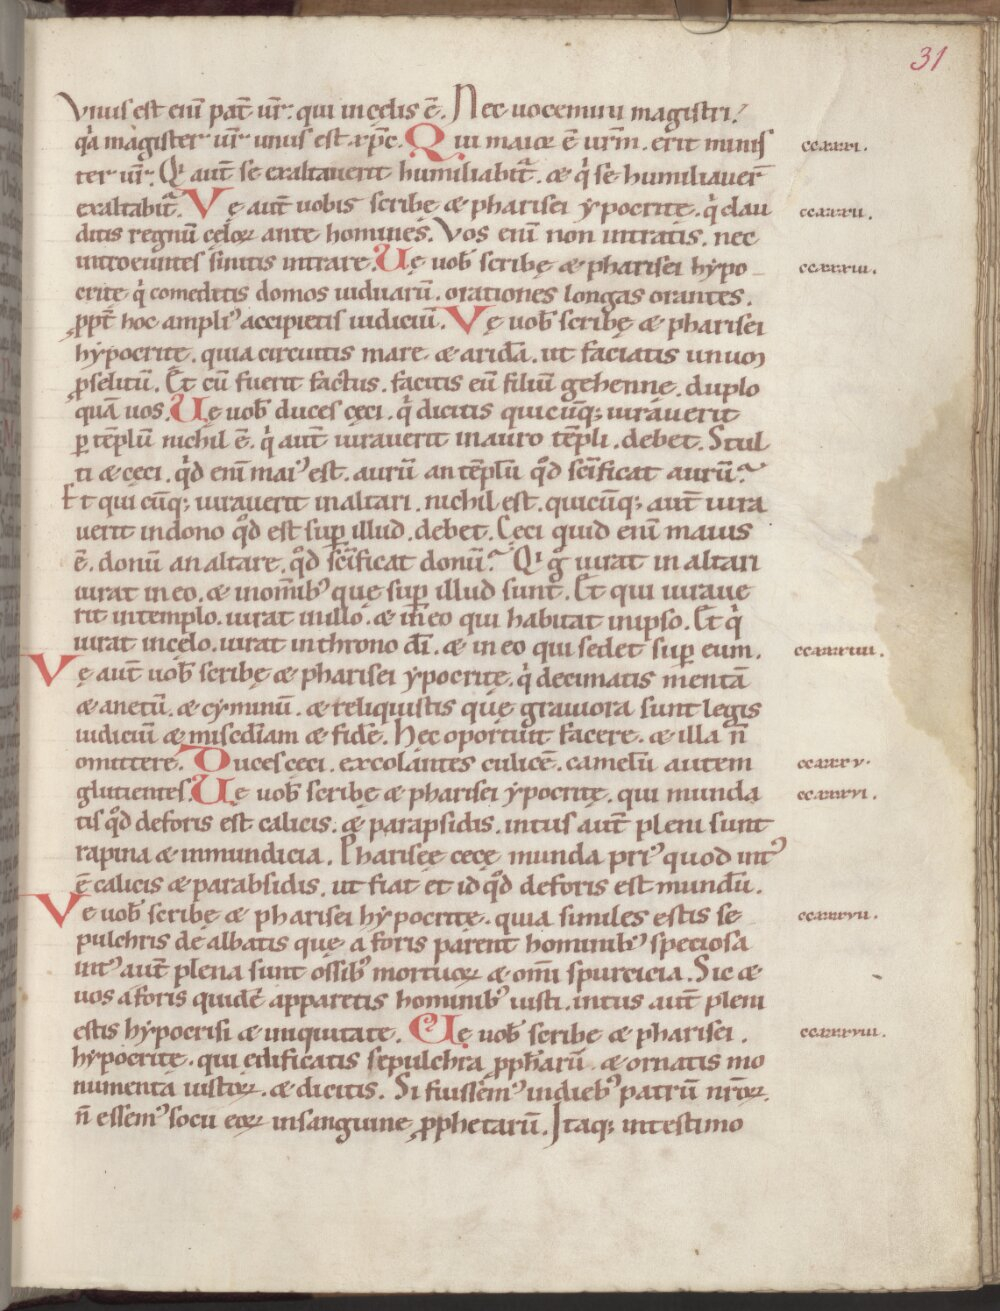 31
Vnus est eni̅ pat̅ ur̅. qui in cęlis e̅. Nec uocemini magistri.
qa̍ magister ur̅ unus est xp̅c. Qui maior e̅ ur̅m. erit minis ccxxxi.
ter ur̅. Qi̍ aut̅ se exaltauerit humiliabit̅. & qi̍ se humiliauer̅
exaltabit̅. Vę aut̅ uobis scribę & pharisei ypocritę. qi̍ clau ccxxxii.
ditis regnu̅ cęloꝝ ante homines. Vos eni̅ non intratis. nec
introeuntes sinitis intrare. Uę uob̅ scribę & pharisei hypo ccxxxiii.
critę qi̍ comeditis domos uiduaru̅. orationes longas orantes.
ꝓpt̅ hoc ampliꝰ accipietis iudiciu̅. Vę uob̅ scribę & pharisei
hypocritę. quia circuitis mare & arida̅. ut faciatis unum
ꝓselitu̅. Et cu̅ fuerit factus. facitis eu̅ filiu̅ gehennę. duplo
qua̅ uos. Uę uob̅ duces cęci. qi̍ dicitis quicu̅q; iurauerit
ꝑ te̅plu̅ nichil e̅. qi̍ aut̅ iurauerit in auro te̅pli. debet. Stul
ti & cęci. qi̍d eni̅ maiꝰ est. auru̅ an te̅plu̅ qo̍d sc̅ificat auru̅?
Et quicu̅q; iurauerit in altari. nichil est. quicu̅q; aut̅ iura
uerit in dono qo̍d est suꝑ illud. debet. Cęci quid eni̅ maius
e̅. donu̅ an altare. qo̍d sc̅ificat donu̅? Qi̍ g̊ iurat in altari
iurat in eo. & in omnibꝰ quę suꝑ illud sunt. Et qui iuraue
rit in templo. iurat in illo. & in eo qui habitat in ipso. Et qi̍
iurat in cęlo. iurat in throno di̅. & in eo qui sedet suꝑ eum. ccxxxiiii.
Vę aut̅ uob̅ scribę & pharisei ypocritę. qi̍ decimatis menta̅
& anetu̅. & cyminu̅. & reliquistis quę grauiora sunt legis
iudiciu̅ & misc̅diam & fide̅. Hec oportuit facere. & illa n̅
omittere. Duces cęci. excolantes culice̅. camelu̅ autem ccxxxv.
glutientes. Uę uob̅ scribę & pharisei ypocritę. qui munda ccxxxvi.
tis qo̍d deforis est calicis. & parapsidis. intus aut̅ pleni sunt
rapina & inmundicia. Pharisęe cecę munda priꝰ quod intꝰ
e̅ calicis & parabsidis. ut fiat et id qo̍d deforis est mundu̅.
Vę uob̅ scribę & pharisei hypocritę. quia similes estis se ccxxxvii.
pulchris dealbatis quę a foris parent hominibꝰ speciosa
intꝰ aut̅ plena sunt ossibꝰ mortuoꝝ & omi̅ spurcicia. Sic &
uos a foris quide̅ apparetis hominibꝰ iusti. intus aut̅ pleni
estis hypocrisi & iniquitate. Uę uob̅ scribę & pharisei. ccxxxviii.
hypocritę. qui ędificatis sepulchra ꝓph̅aru̅. & ornatis mo
numenta iustoꝝ. & dicitis. Si fuissemꝰ in diebꝰ patru̅ nr̅oꝝ.
n̅ essemꝰ socii eoꝝ in sanguine ꝓphetaru̅. Itaq; in testimo